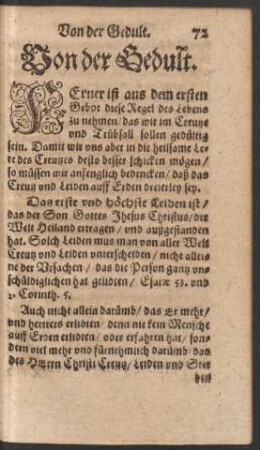 Von der Gedult. 72
Von der Gedult.
FErner ist aus dem ersten
Gebot diese Regel des Lebens
zu nehmen / das wir im Creutze
und Trübsall sollen gedültig
sein. Damit wir vns aber in die heilsame Le⸗
re des Creutzes desto besser schicken mögen /
so müssen wir anfenglich bedencken / daß das
Creutz vnd Leiden auff Erden dreierley sey.
Das erste vnd höchste Leiden ist /
das der Son Gottes Jhesus Christus / der
Welt Heiland ertragen / vnd außgestanden
hat. Solch Leiden mus man von aller Welt
Creutz vnd Leiden vnterscheiden / nicht allei⸗
ne der Vrsachen / das die Person gantz vn⸗
schüldiglichen hat gelidten / Esaiæ 53. vnd
2. Corinth. 5.
Auch nicht allein darümb / das Er mehr /
vnd herteres erlidten / denn nie kein Mensche
auff Erden erlidten / oder erfahren hat / son⸗
dern viel mehr vnd fürnehmlich darümb / das
des HErrn Christi Creutz / Leiden vnd Ster
ben